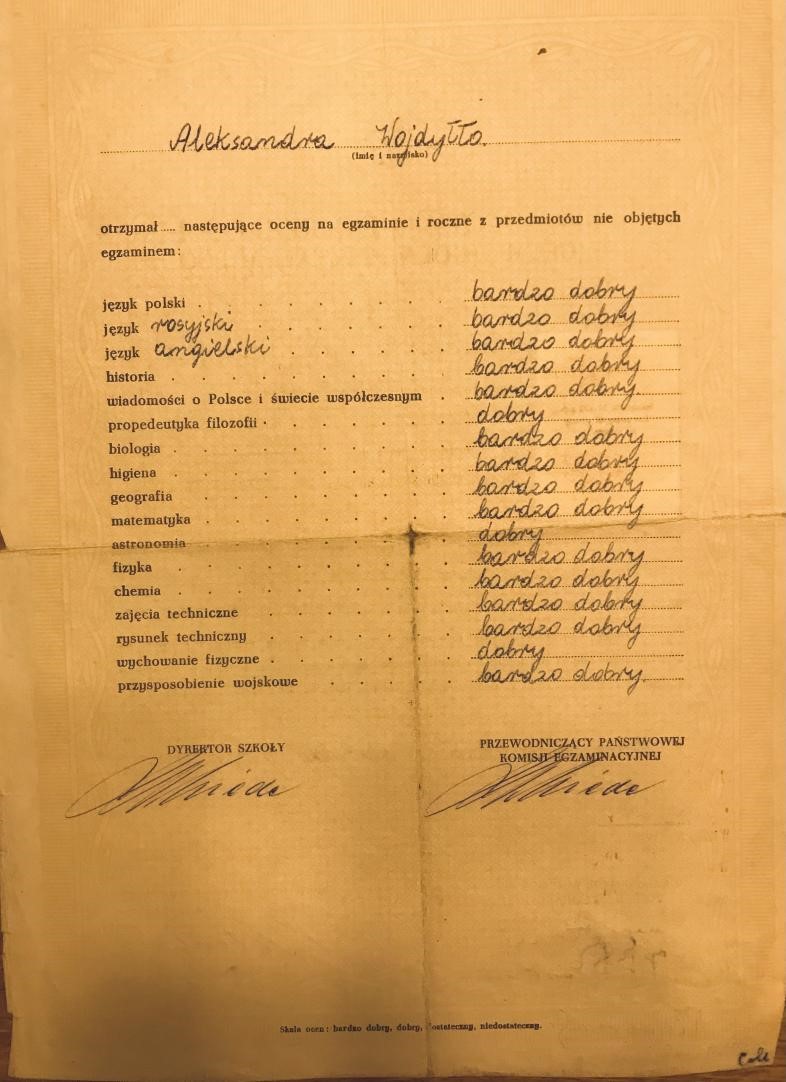 Aleksandra Wojdyłło
(imię i nazwisko)
otrzymał..... następujące oceny na egzaminie i roczne z przedmiotów nie objętych
egzaminem:
język polski . . . . . . . bardzo dobry
język rosyjski . . . . . bardzo dobry
język angielski . . . . . bardzo dobry
historia . . . . . . . bardzo dobry
wiadomości o Polsce i świecie współczesnym . bardzo dobry
propedeutyka filozofii . . . . . . dobry
biologia . . . . . . . bardzo dobry
higiena . . . . . . . bardzo dobry
geografia . . . . . . bardzo dobry
matematyka . . . . . . bardzo dobry
astronomia . . . . . . dobry
fizyka . . . . . . . bardzo dobry
chemia . . . . . . . bardzo dobry
zajęcia techniczne . . . . . bardzo dobry
rysunek techniczny . . . . . bardzo dobry
wychowanie fizyczne . . . . . dobry
przysposobienie wojskowe . . . . bardzo dobry
DYREKTOR SZKOŁY
PRZEWODNICZĄCY PAŃSTWOWEJ
KOMISJI EGZAMINACYJNEJ
Skala ocen: bardzo dobry, dobry, dostateczny, niedostateczny.